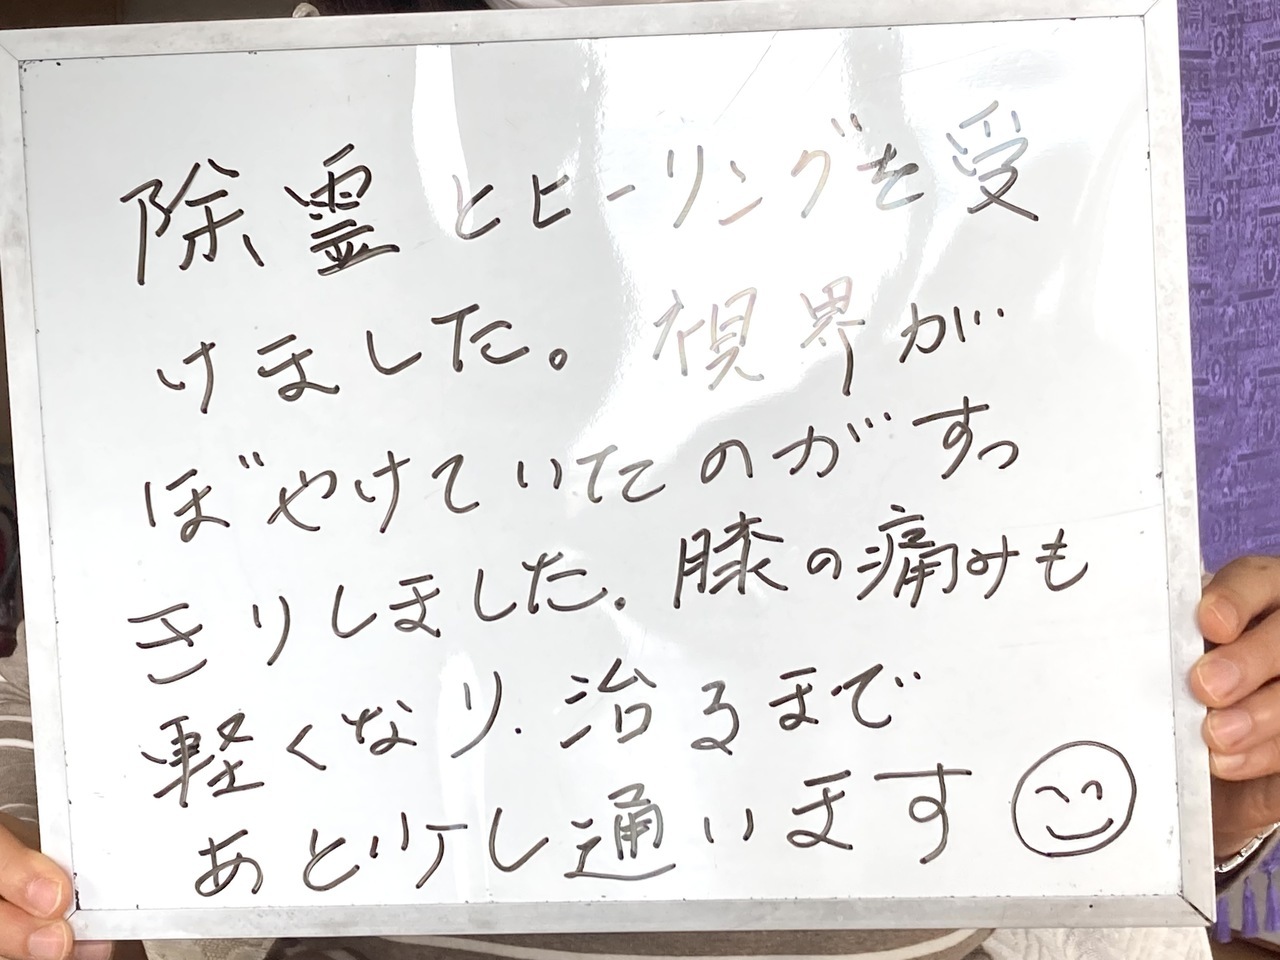 除霊とヒーリングを受
けました。視界が
ぼやけていたのがすっ
きりしました。膝の痛みも
軽くなり、治るまで
あと少し通います